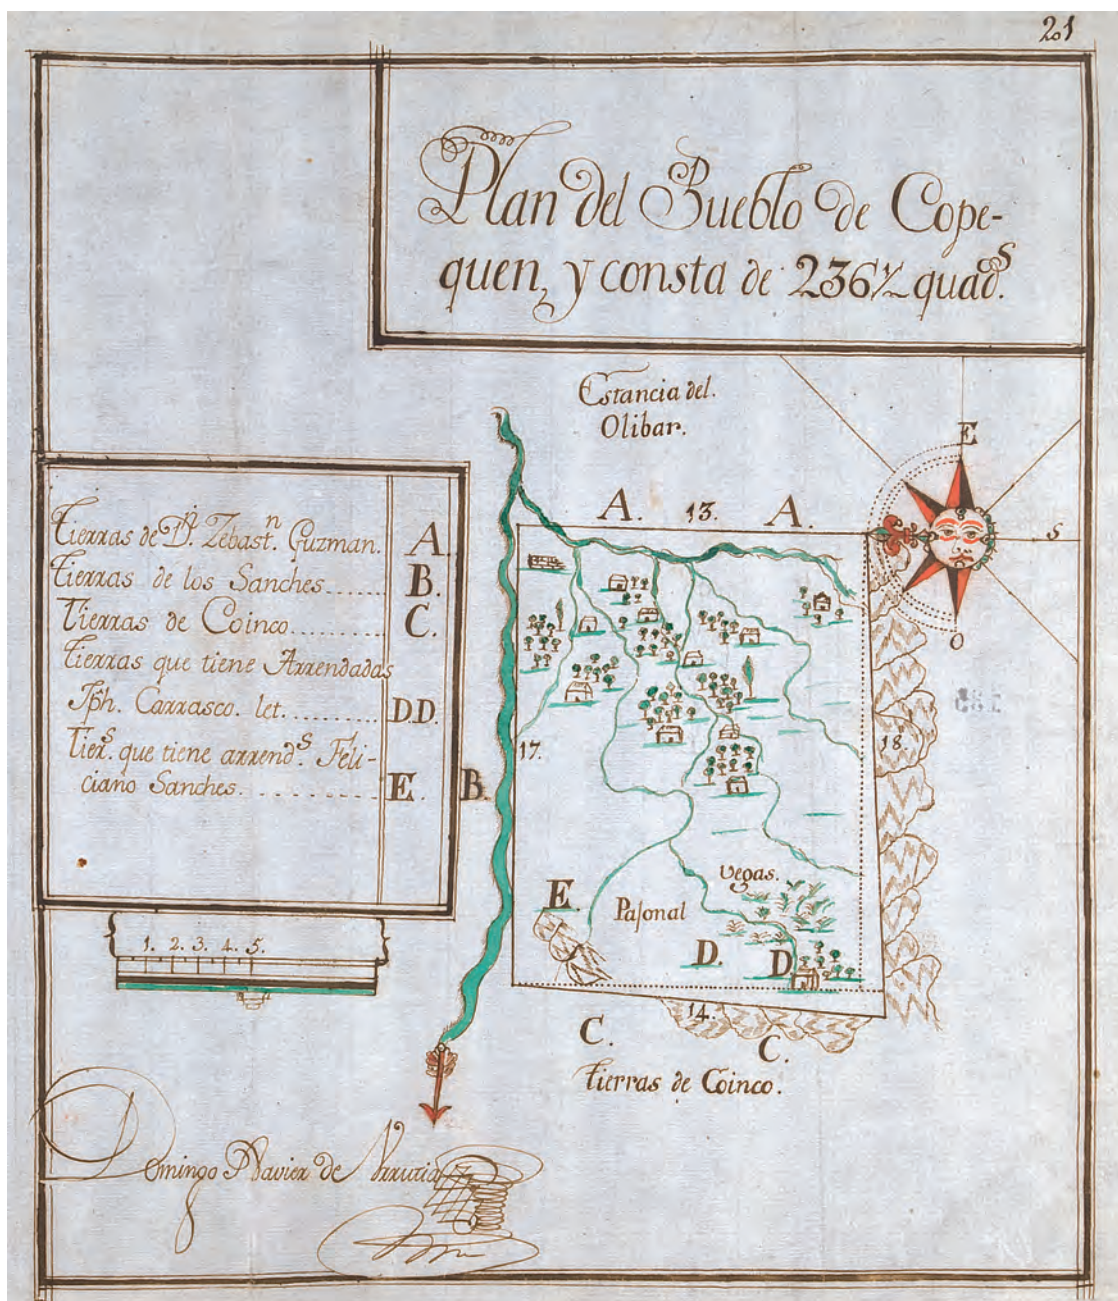 201
Plan del Pueblo de Cope-
quen, y consta de 236½ quad.ˢ
Estancia del.
Olibar.
E
S
O
A. 13. A.
Tierras de D.ⁿ Zebast.ⁿ Guzman. A.
Tierras de los Sanches...... B.
Tierras de Coinco........... C.
Tierras que tiene Arrendadas
Jph. Carrasco. let.......... D.D.
Tier.ˢ que tiene arrend.ˢ Feli-
ciano Sanches. ........... E.
B.
17.
18.
Vegas.
E.
Pajonal
D. D.
1. 2. 3. 4. 5.
14.
C. C.
Tierras de Coinco.
Domingo Xavier de Vrrutia